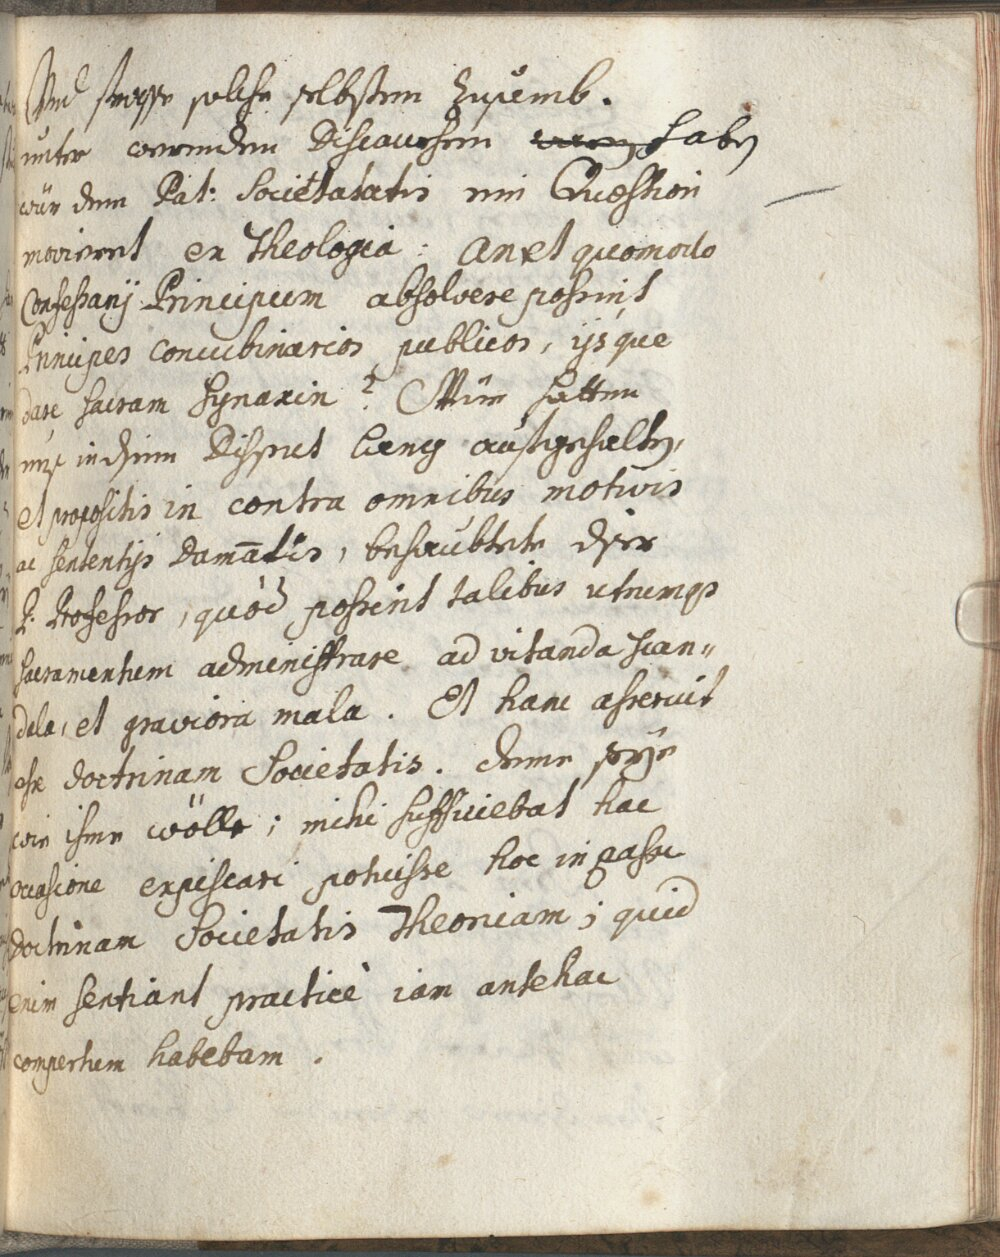 Und solche selbsten
unter werenden Discoursen haben
wür dem Pat: Societatatis ein Quæstion
moviert ex Theologia: an et quomodo
Confessarij Principum absolvere possint
Principes concubinarios publicos, ijsque
dare sacram Synaxin? Wür hatten
uns in disem Disput lang aufgehalten,
et propositis in contra omnibus motivis
ac sententijs damatis, behaubtete diser
P. Professor, quòd possint talibus utrumqs
sacramentum administrare ad vitanda scan„
dala, et graviora mala. Et hanc asseruit
esse doctrinam Societatis. deme seye
wie ihme wölle; mihi sufficiebat hac
occasione expiscari potuisse hoc in passu
doctrinam Societatis Theoricam; quid
enim sentiant practicè iam antehac
compertum habebam.